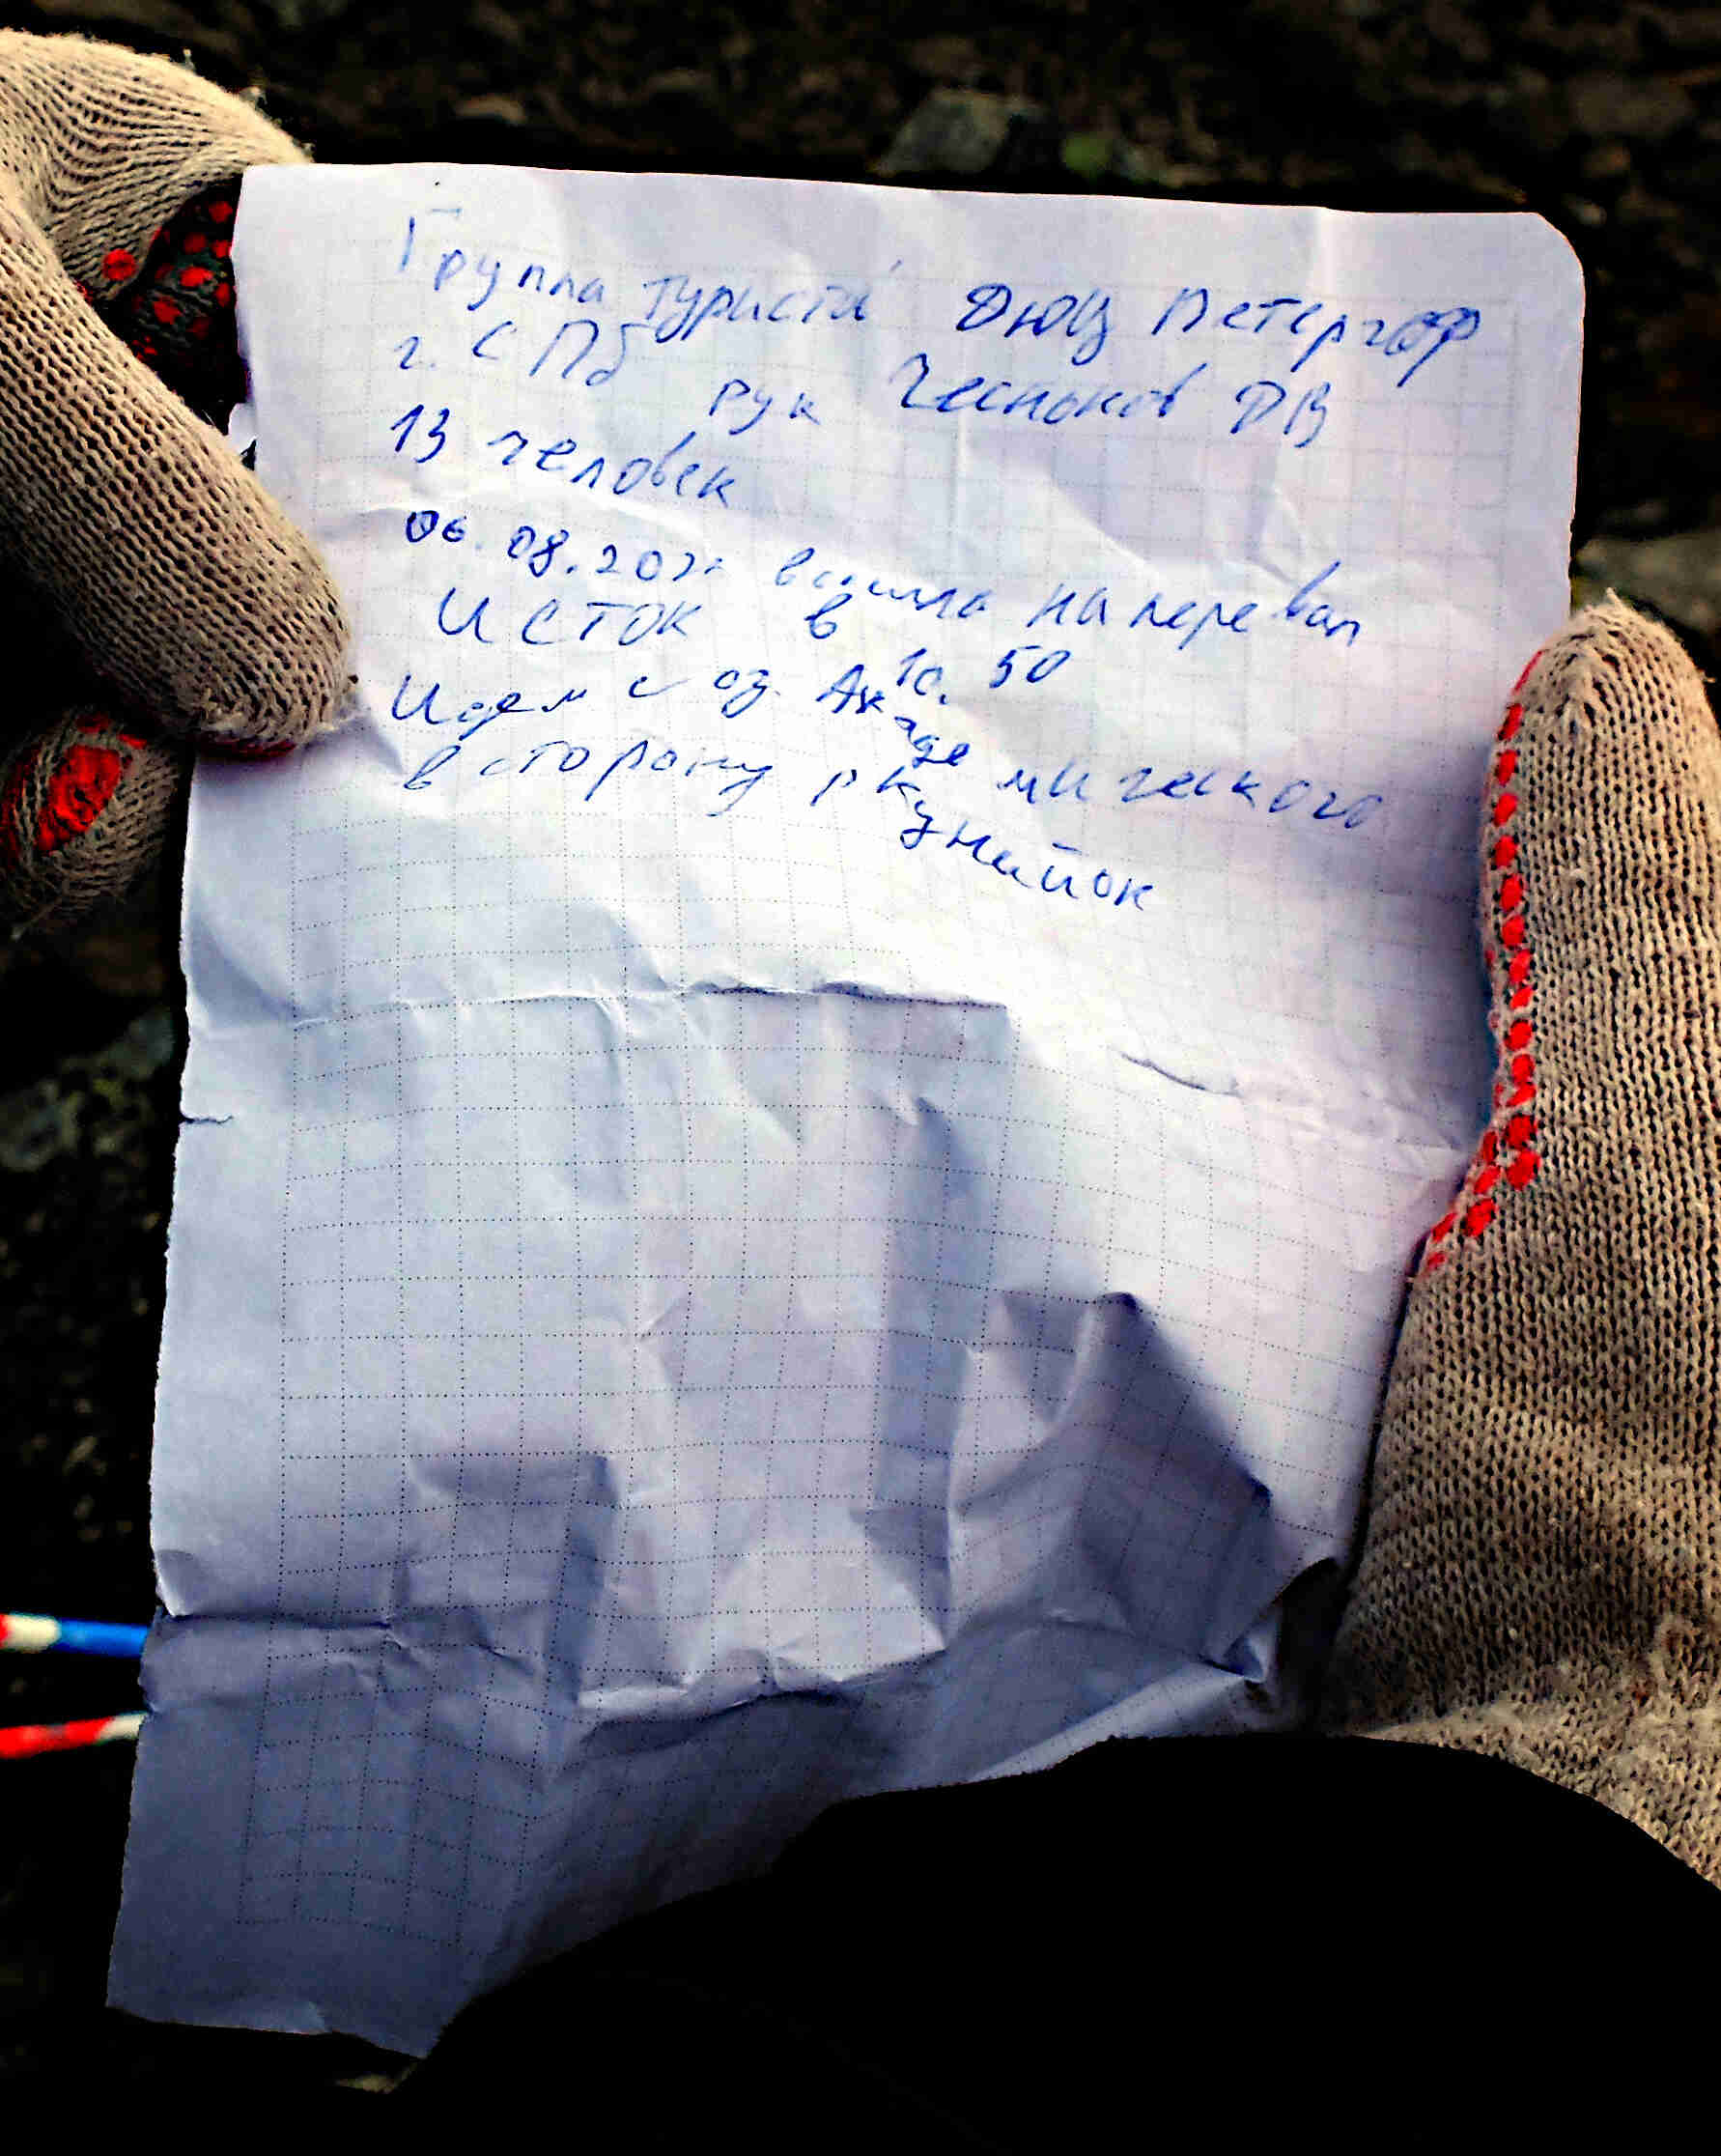 Группа туриста ДЮЦ Петергоф
г. СПб рук Чесноков ДВ
13 человек
06.08.202 взошла на перевал
ИСТОК в 10.50
Идем с оз. Академического
в сторону р Кунийок